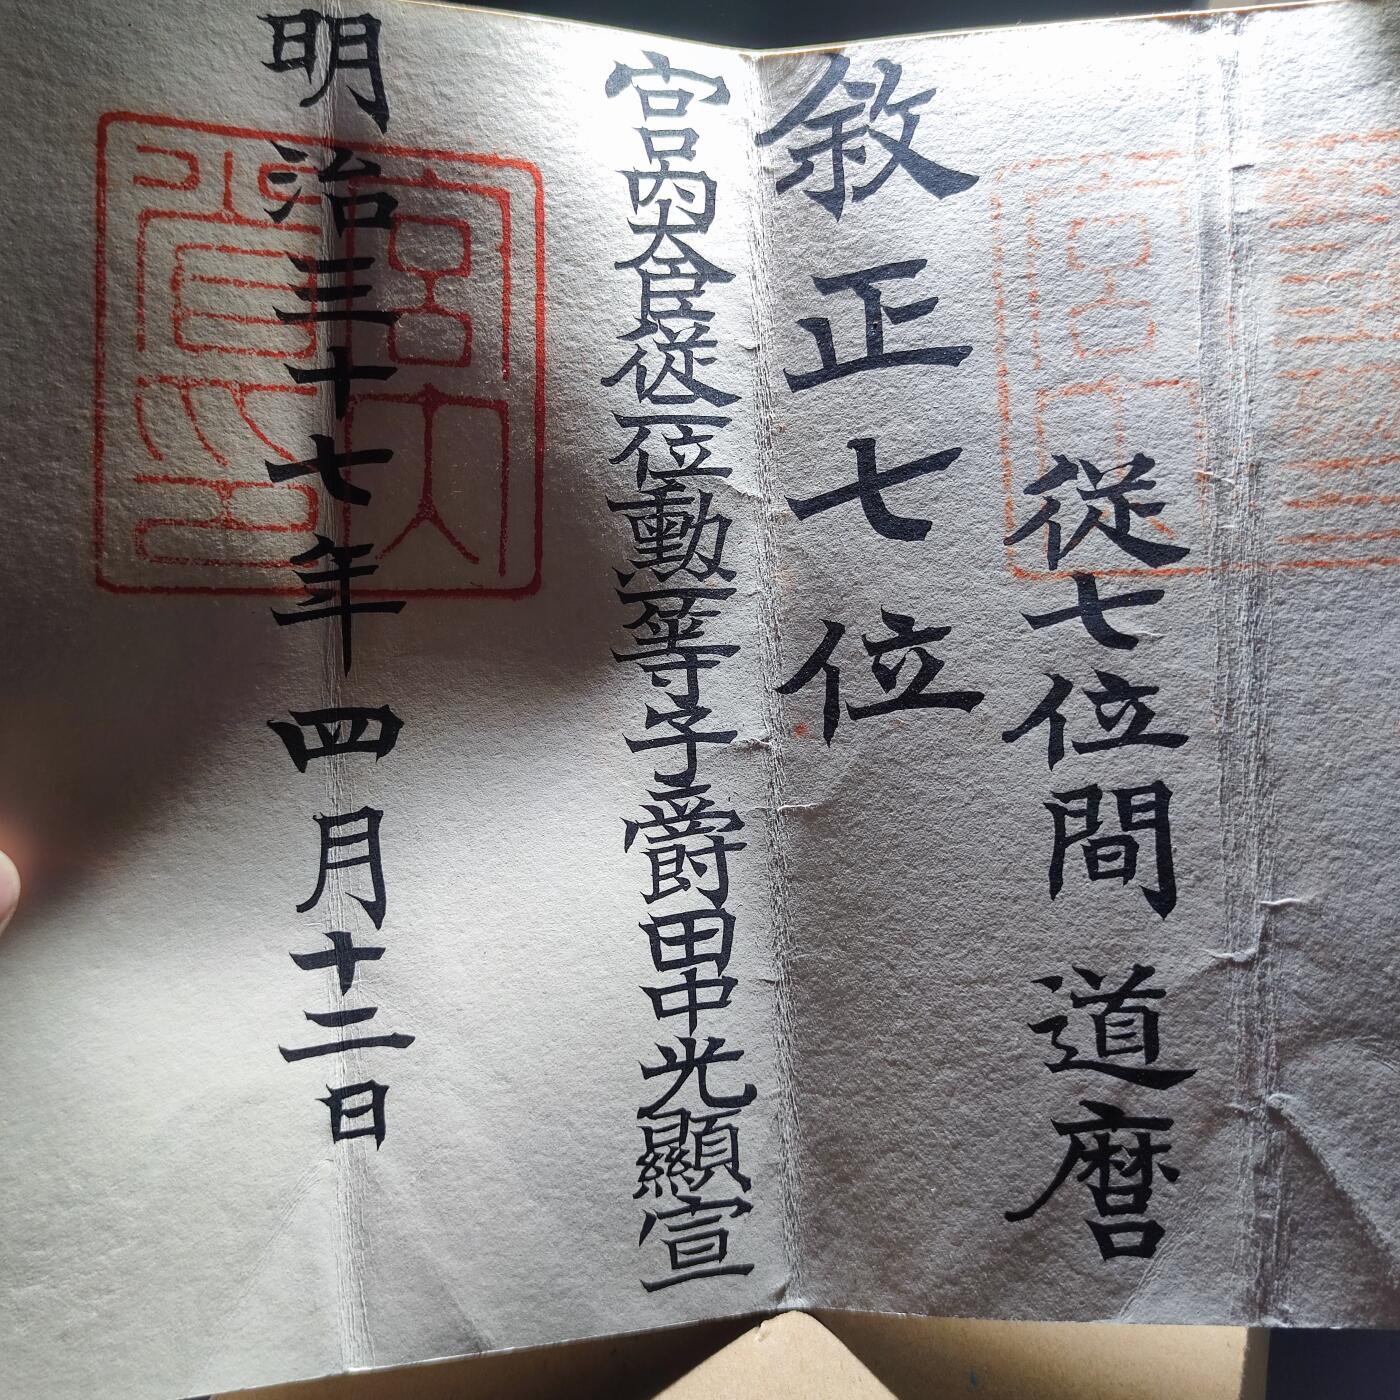 從七位間 道麿
敘正七位
宮內大臣從二位勳一等子爵田中光顯宣
明治三十七年四月十二日
宮内省之印